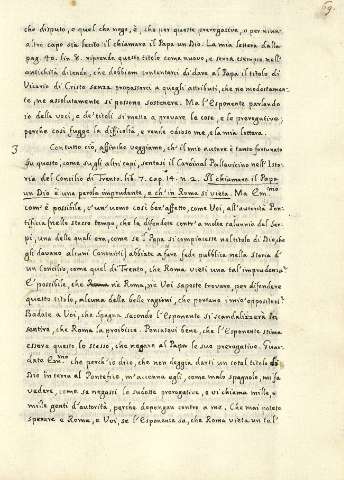 69.
che disputo, e quel che nego, è, che per queste prerogative, o per niun'
altro capo sia lecito il chiamare il Papa un Dio. La mia lettera dalla
pag. 40. lin. 8. riprende questo titolo come nuovo, e senza esempio nell'
antichità dicendo, che debbiam contentarci di dare al Papa il titolo di
Vicario di Cristo senza propassarci a quegli attributi, che nè modestamen-
te, ne assolutamente si possono sostenere. Ma l'Esponente parlando
io della voci, e de' titoli si mette a provare le cose, e le prerogative;
perche così fugge la dificoltà, e rende odioso me, e la mia lettera.
3 Con tutto ciò, affinche veggiamo, ch'il mio autore è tanto fortunato
su questo, come sugli altri capi, sentasi il Cardinal Pallavicino nell'Isto-
ria del Concilio di Trento. lib. 7. cap. 14. n. 2. Il chiamare il Papa
un Dio è una parola imprudente, e ch'in Roma si vieta. Ma Em.mo
com'è possibile, c'un'uomo così ben'affetto, come Voi, all'autorità Pon-
tificia nello stesso tempo, che la difendete contr'a molte calunnie del Sar-
pi, una delle quali era, come se 'l Papa si compiacesse nel titolo di Dio, che
gli davano alcuni Canonisti abbiate a fare fede pubblica nella Storia d'
un Concilio, come quel di Trento, che Roma vieti una tal'imprudenza?
E' possibile, che nè Roma, ne Voi sapeste trovare, per difendere
questo titolo, alcuna delle belle ragioni, che portano i mie'oppositori?
Badate a Voi, che Spagna secondo l'Esponente si scandalizzerà in
sentire, che Roma la proibisce. Pensatevi bene, che l'Esponente stima
essere questo lo stesso, che negare al Papa le sue prerogative. Guar-
date Em.mo che perch'io dico, che non deggia darsi un cotal titolo di
Dio in terra al Pontefice, m'accusa egli, come malo spagnolo, mi fa
vedere, come se negassi le sudette prerogative, e vi chiama mille, e
mille genti d'autorità, perche depongan contro a me. Che mai potete
sperare e Roma, e Voi, se l'Esponente sa, che Roma vieta un tal'